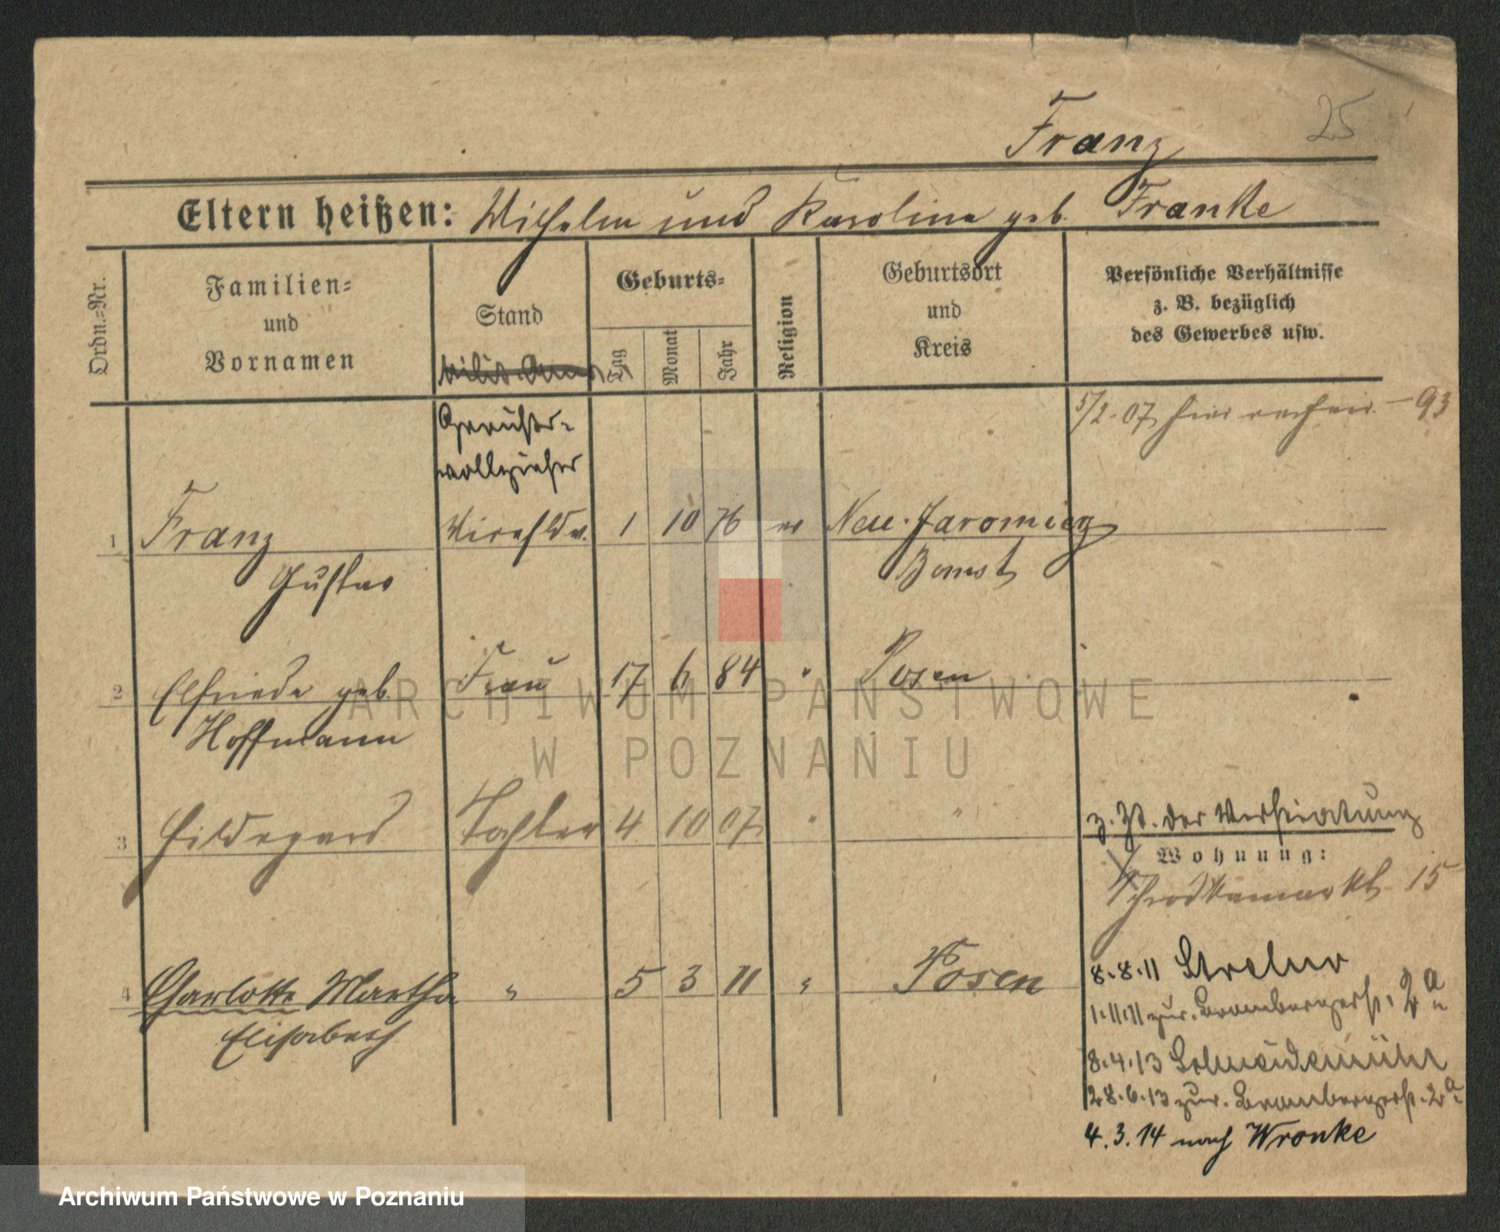 25
Franz
Eltern heißen: Wilhelm und Karoline geb. Franke
Ordn.=Nr.
Familien=
und
Vornamen
Stand
Geburts=
Tag
Monat
Jahr
Religion
Geburtsort
und
Kreis
Persönliche Verhältnisse
z. B. bezüglich
des Gewerbes usw.
5/2. 07 hier 93
Gerichts-
vollzieher
1 Franz 1 10 76 ev Neu-Jaromierz
Gustav Bomst
2 Elfriede geb Frau 17 6 84 " Posen
Hoffmann
3 Hildegard Tochter 4 10 07 " "
z. Zt. der Verheiratung
Wohnung:
Schrodkamarkt 15
4 Charlotte Martha " 5 3 11 " Posen
Elisabeth
8.8.11 Strelno
1.11.11 zur. Brombergerst. 2a
8.4.13 Schneidemühl
28.6.13 zur. Brombergerst. 2a
4.3.14 nach Wronke
ARCHIWUM PAŃSTWOWE
W POZNANIU
Archiwum Państwowe w Poznaniu